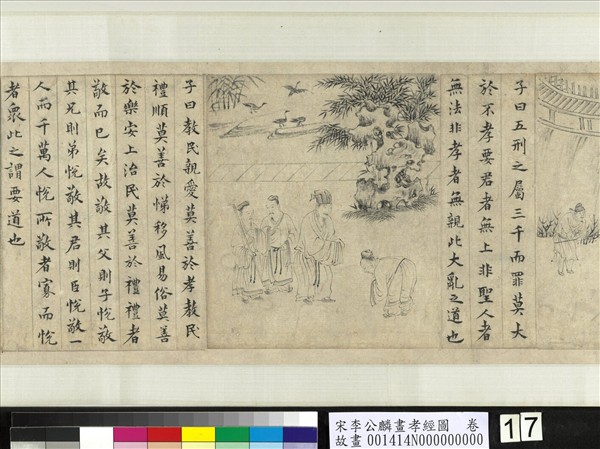 子曰五刑之屬三千而罪莫大
於不孝要君者無上非聖人者
無法非孝者無親此大亂之道也
子曰教民親愛莫善於孝教民
禮順莫善於悌移風易俗莫善
於樂安上治民莫善於禮禮者
敬而已矣故敬其父則子悅敬
其兄則弟悅敬其君則臣悅敬一
人而千萬人悅所敬者寡而悅
者衆此之謂要道也
宋李公麟畫孝經圖 卷
故畫 001414N000000000
17